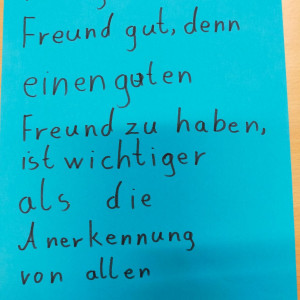 Freund gut, denn
einen guten
Freund zu haben,
ist wichtiger
als die
Anerkennung
von allen